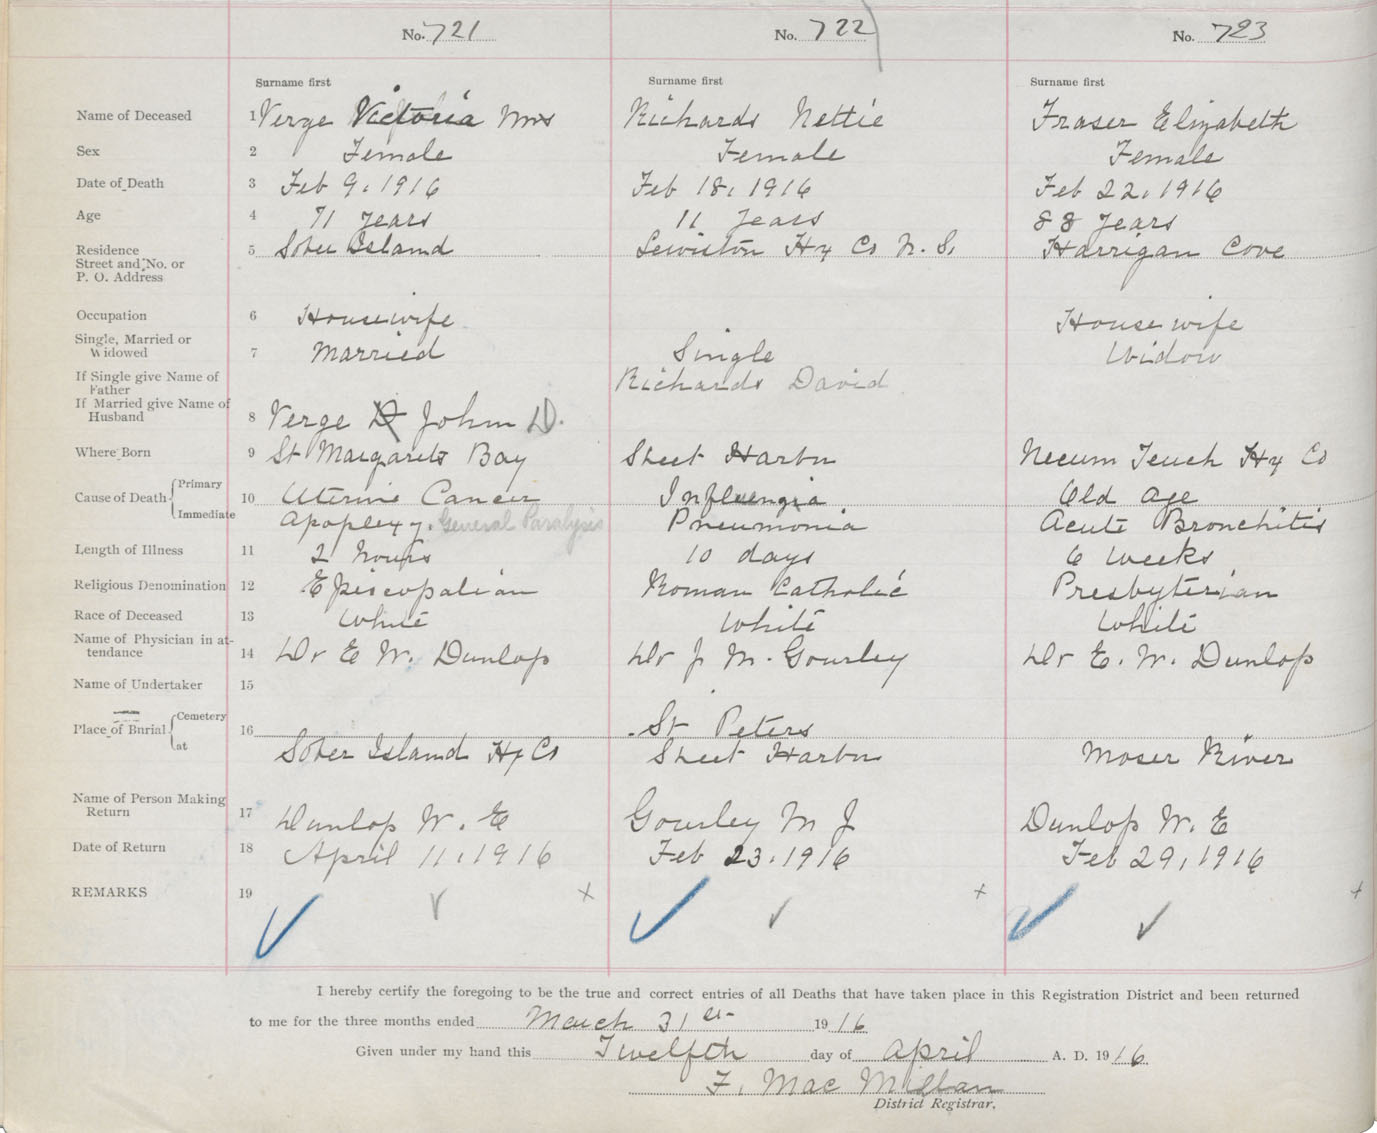 No. 721 No. 722 No. 723
Surname first Surname first Surname first
Name of Deceased 1 Verge Victoria Mrs Richards Nettie Fraser Elizabeth
Sex 2 Female Female Female
Date of Death 3 Feb 9, 1916 Feb 18, 1916 Feb 22, 1916
Age 4 71 years 11 years 88 years
Residence 5 Sober Island Lewiston Hx Co N. S. Harrigan Cove
Street and No. or
P. O. Address
Occupation 6 Housewife House wife
Single, Married or
Widowed 7 Married Single Widow
If Single give Name of
Father Richards David
If Married give Name of
Husband 8 Verge John D.
Where Born 9 St Margarets Bay Sheet Harbor Necum Teuch Hx Co
Cause of Death Primary 10 Uterine Cancer Influengia Old Age
Immediate Apoplexy. General Paralysis Pneumonia Acute Bronchitis
Length of Illness 11 2 hours 10 days 6 weeks
Religious Denomination 12 Episcopalian Roman Catholic Presbyterian
Race of Deceased 13 White White White
Name of Physician in at-
tendance 14 Dr E W. Dunlop Dr J M. Gourley Dr E. W. Dunlop
Name of Undertaker 15
Place of Burial Cemetery 16 St Peters
at Sober Island Hx Co Sheet Harbor Moser River
Name of Person Making
Return 17 Dunlop W. E Gourley M J Dunlop W. E
Date of Return 18 April 11, 1916 Feb 23, 1916 Feb 29, 1916
REMARKS 19
I hereby certify the foregoing to be the true and correct entries of all Deaths that have taken place in this Registration District and been returned
to me for the three months ended March 31st 1916
Given under my hand this Twelfth day of April A. D. 1916
F. Mac Millan
District Registrar.